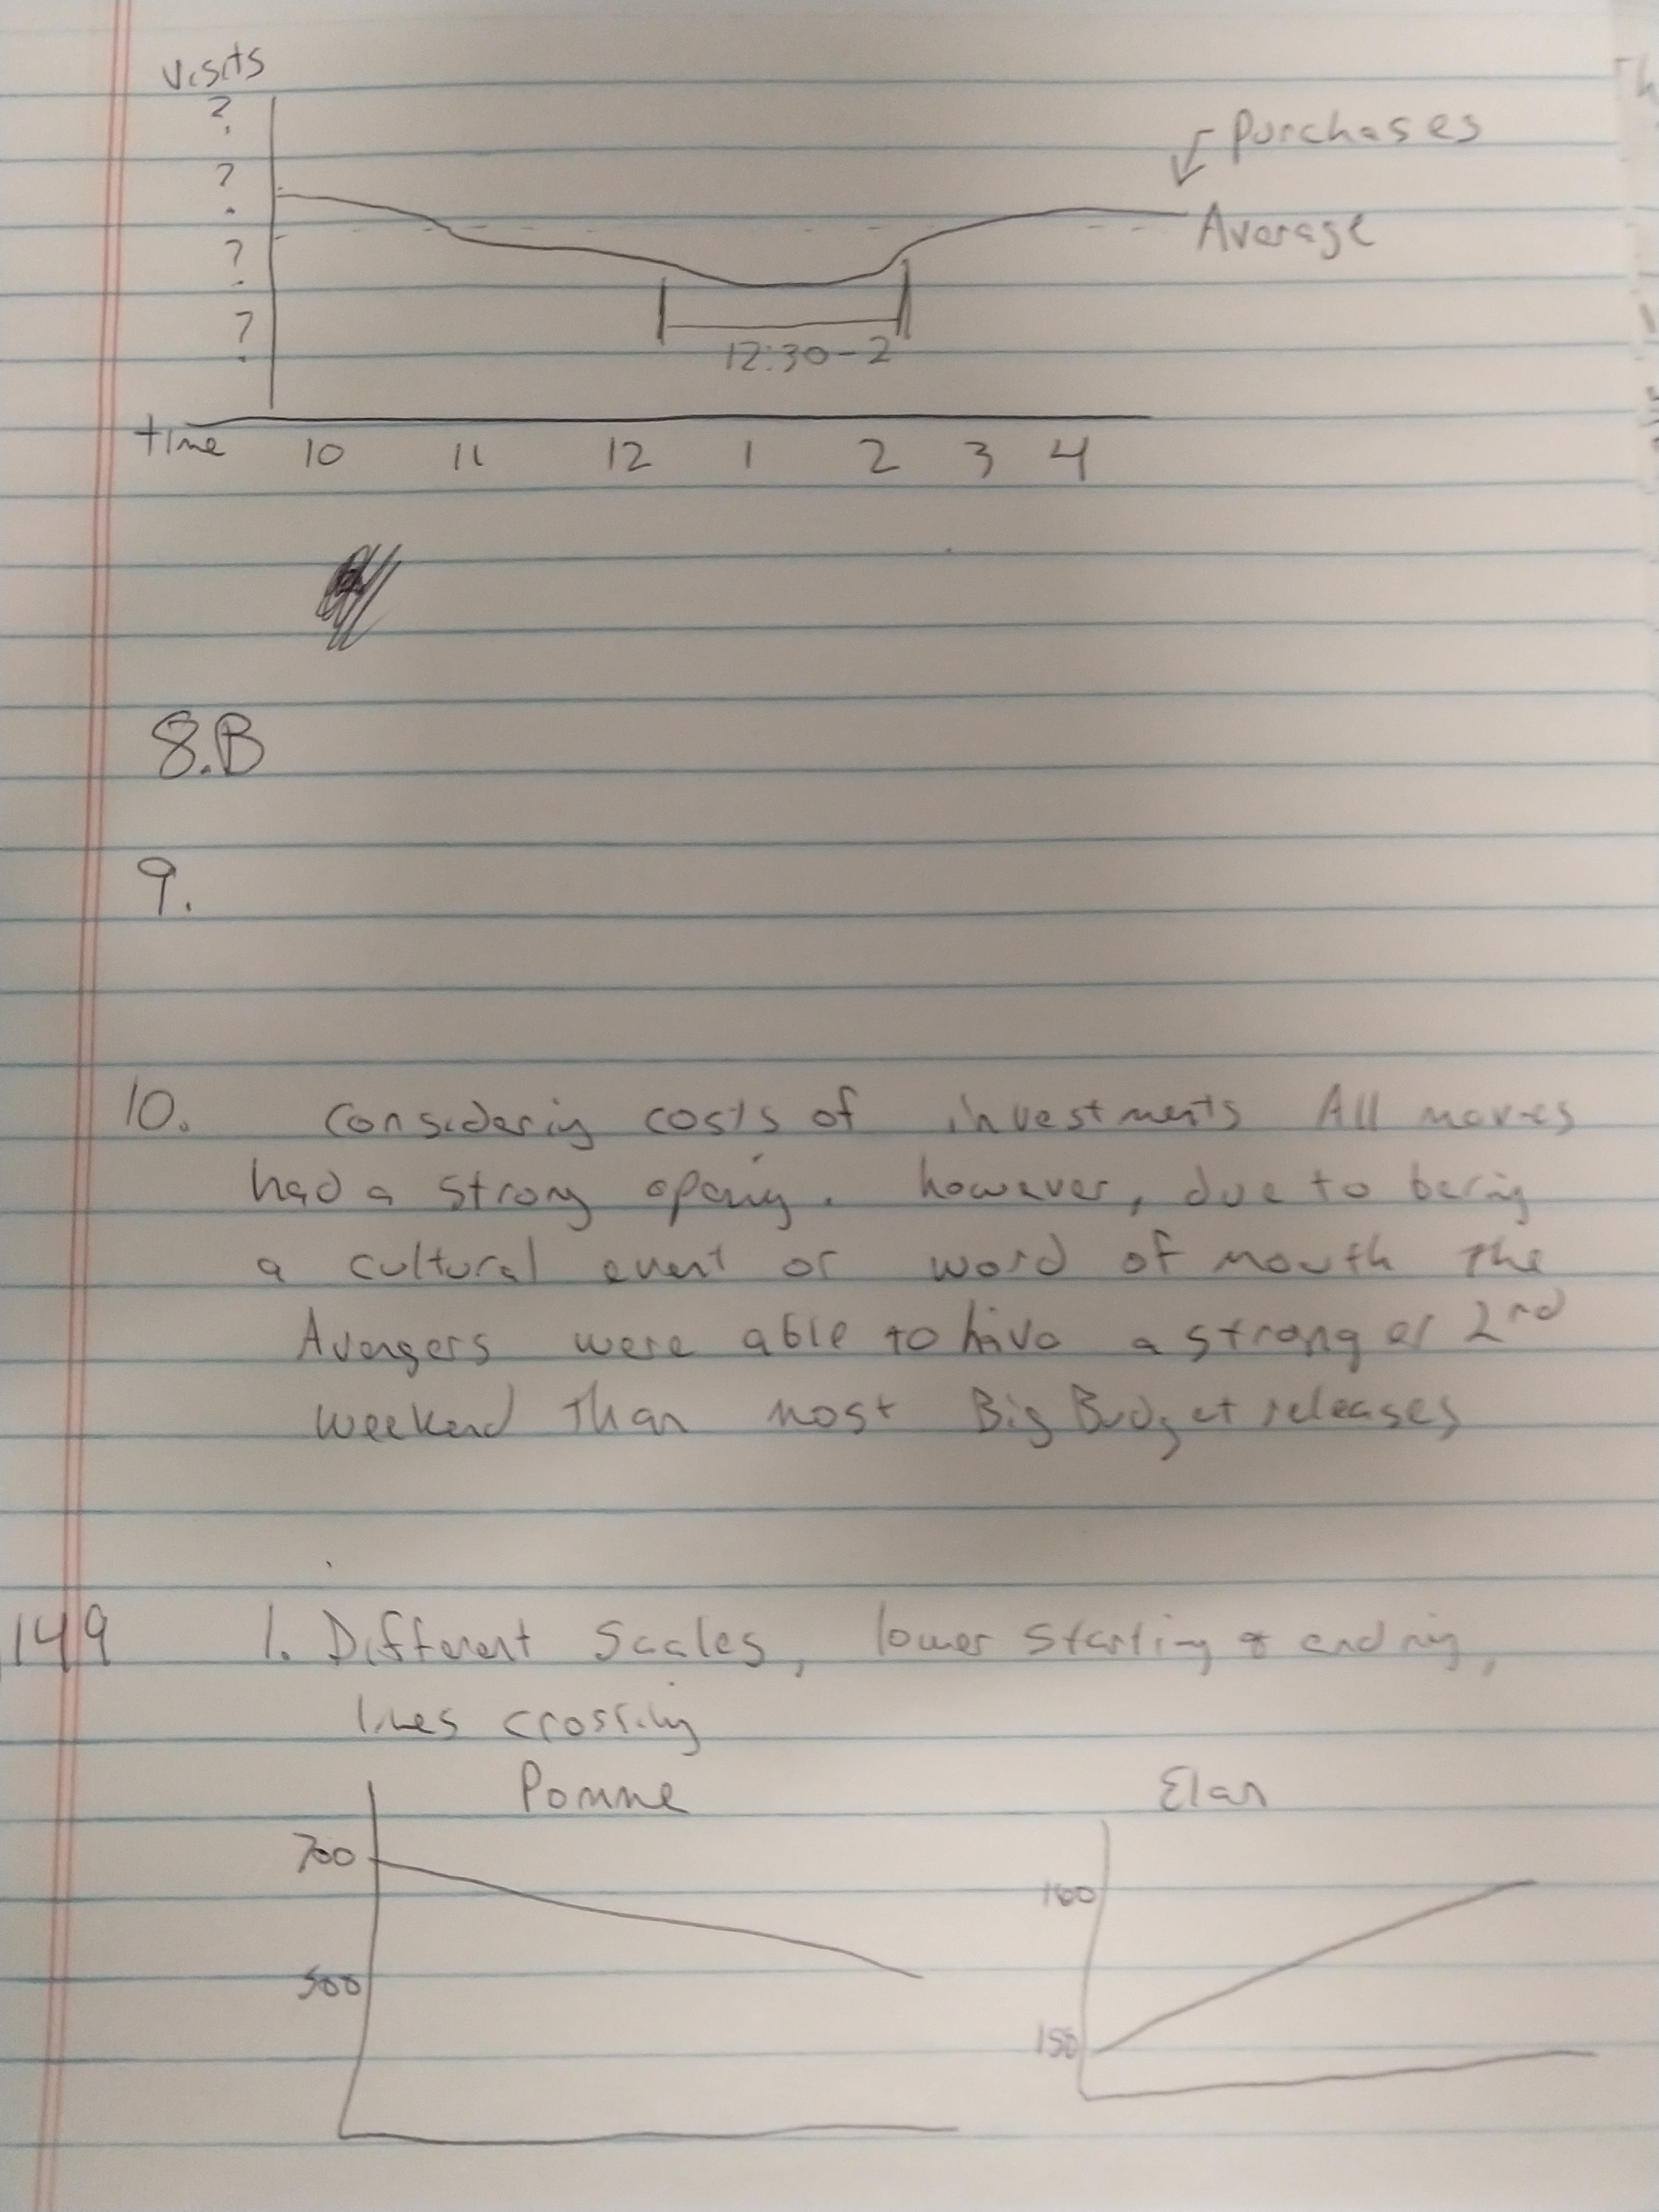 Visits
?
?
?
?
Purchases
Average
12:30-2
time 10 11 12 1 2 3 4
8.B
9.
10. Considering costs of investments All movies
had a strong opening. however, due to being
a cultural event or word of mouth the
Avengers were able to have a stronger 2nd
weekend Than most Big Budget releases
149 1. Different Scales, lower starting & ending,
lines crossing
Pomme Elan
700
500
160
150